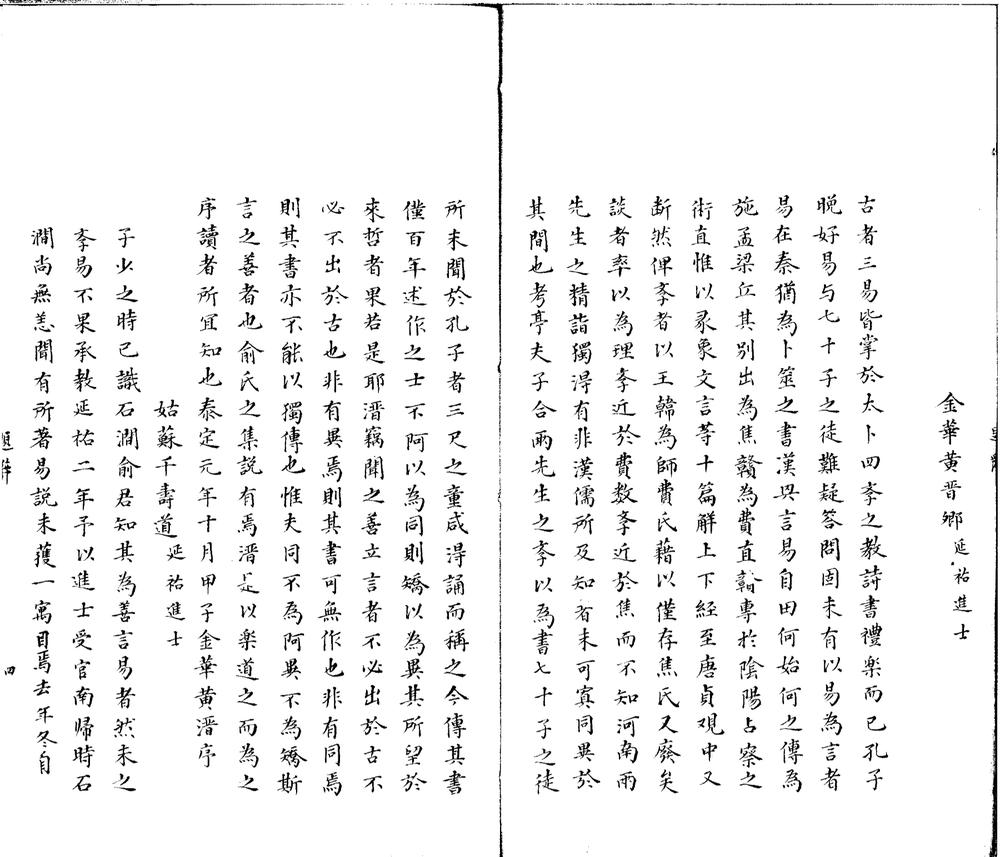 金華黃晉卿延祐進士
古者三易皆掌於太卜四孝之教詩書禮楽而已孔子
晚好易与七十子之徒難疑答問固未有以易為言者
易在秦猶為卜筮之書漢興言易自田何始何之傳為
施孟梁丘其別出為焦贛為費直贛專於陰陽占察之
術直惟以彖象文言等十篇解上下經至唐貞观中又
断然俾孝者以王韓為師費氏藉以僅存焦氏又廢矣
談者率以為理孝近於費数孝近於焦而不知河南兩
先生之精詣獨淂有非漢儒所及知者未可寘同異於
其間也考亭夫子合兩先生之孝以為書七十子之徒
所未聞於孔子者三尺之童咸淂誦而稱之今傳其書
僅百年述作之士不阿以為同則矯以為異其所望於
來哲者果若是耶溍竊聞之善立言者不必出於古不
必不出於古也非有異焉則其書可無作也非有同焉
則其書亦不能以獨傳也惟夫同不為阿異不為矯斯
言之善者也俞氏之集説有焉溍是以楽道之而為之
序讀者所宜知也泰定元年十月甲子金華黃溍序
姑蘇干壽道延祐進士
子少之時已識石澗俞君知其為善言易者然未之
孝易不果承教延祐二年予以進士受官南歸時石
澗尚無恙聞有所著易説未獲一寓目焉去年冬自
四